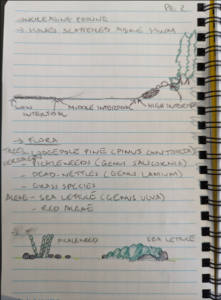 PG. 2
- INCREASING
→ SCATTERED ABOVE
LOW INTERTIDAL
MIDDLE INTERTIDAL
HIGH INTERTIDAL
→ FLORA
TREES - LODGEPOLE PINE (PINUS CONTORTA)
- PICKLEWEED (GENUS SALICORNIA)
- DEAD-NETTLES (GENUS LAMIUM)
- GRASS SPECIES
ALGAE - SEA LETTUCE (GENUS ULVA)
- RED ALGAE
PICKLEWEED
SEA LETTUCE